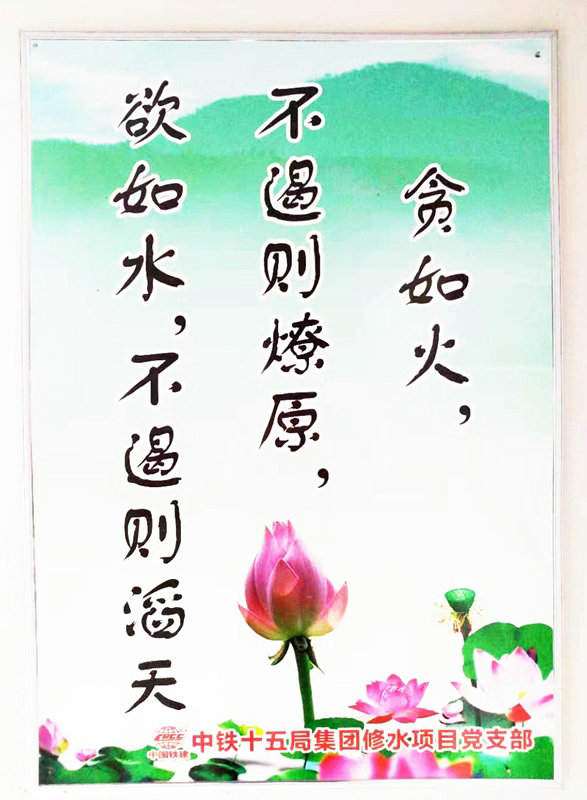 贪如火，
不遏则燎原，
欲如水，不遏则滔天
中国铁建
中铁十五局集团修水项目党支部